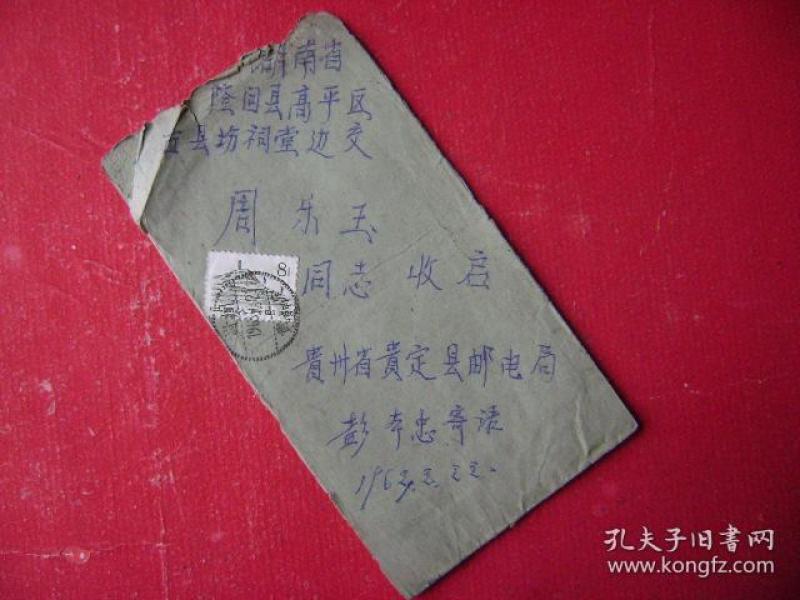 湖南省
隆回县高平区
古县坊祠堂边交
周乐玉
同志 收启
8
贵州省贵定县邮电局
彭本忠寄
孔夫子旧书网
www.kongfz.com